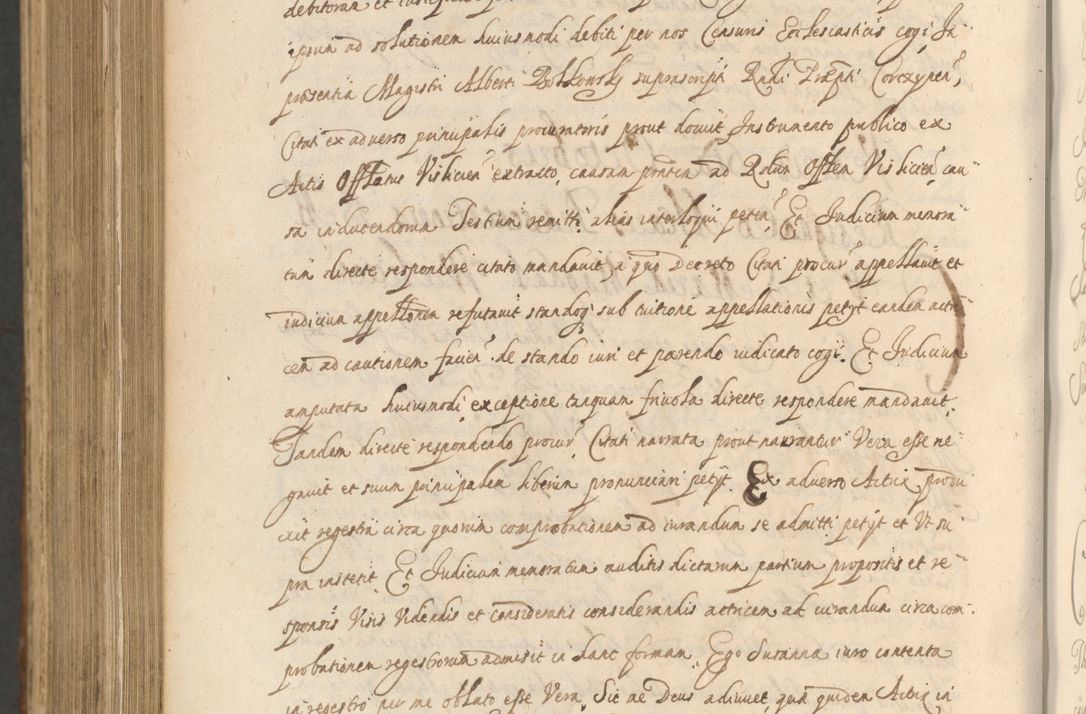 debitorem et
ipsum ad solutionem huiusmodi debiti per nos Censuris Ecclesiasticis cogi In
præsentia Magistri Alberti Bolkowsky suprascripti Rndi Præpti Corczynen̄,
Citati ex adverso principalis procuratoris prout docuit Instrumento publico ex
Actis Offlatus Vislicien̄ extracto, causam pntem ad Rdum Offlem Vislicien̄ cau
sa inducendorum Testium remitti alias interloqui peten̄. Et Judicium memora
tum directe respondere citato mandavit, a quo Decreto Citati procur̄ appellavit et
iudicium appellonem refutavit standoq; sub tuitione appellationis petyt eandem actri
cem ad cautionem facien̄ de stando iuri et parendo iudicato cogi. Et Judicium
amputata huiusmodi exceptione tanquam frivola directe respondere mandavit.
Tandem directe respondendo procur̄ Citati narrata prout narrantur Vera esse ne
gavit et suum principalem liberum pronunciari petyt. Ex adverso Actrix produ
xit regestra circa quorum comprobationem ad iurandum se admitti petyt et Ut su
pra institit. Et Judicium memoratum auditis dictarum partium propositis et re
sponsis Visis Videndis et consideratis considerandis actricem ad iurandum circa com
probationem regestrorum admisit in hanc formam. Ego Susanna iuro contenta
in regestro per me oblato esse Vera, Sic me Deus adiuvet, quæ quidem Actrix in